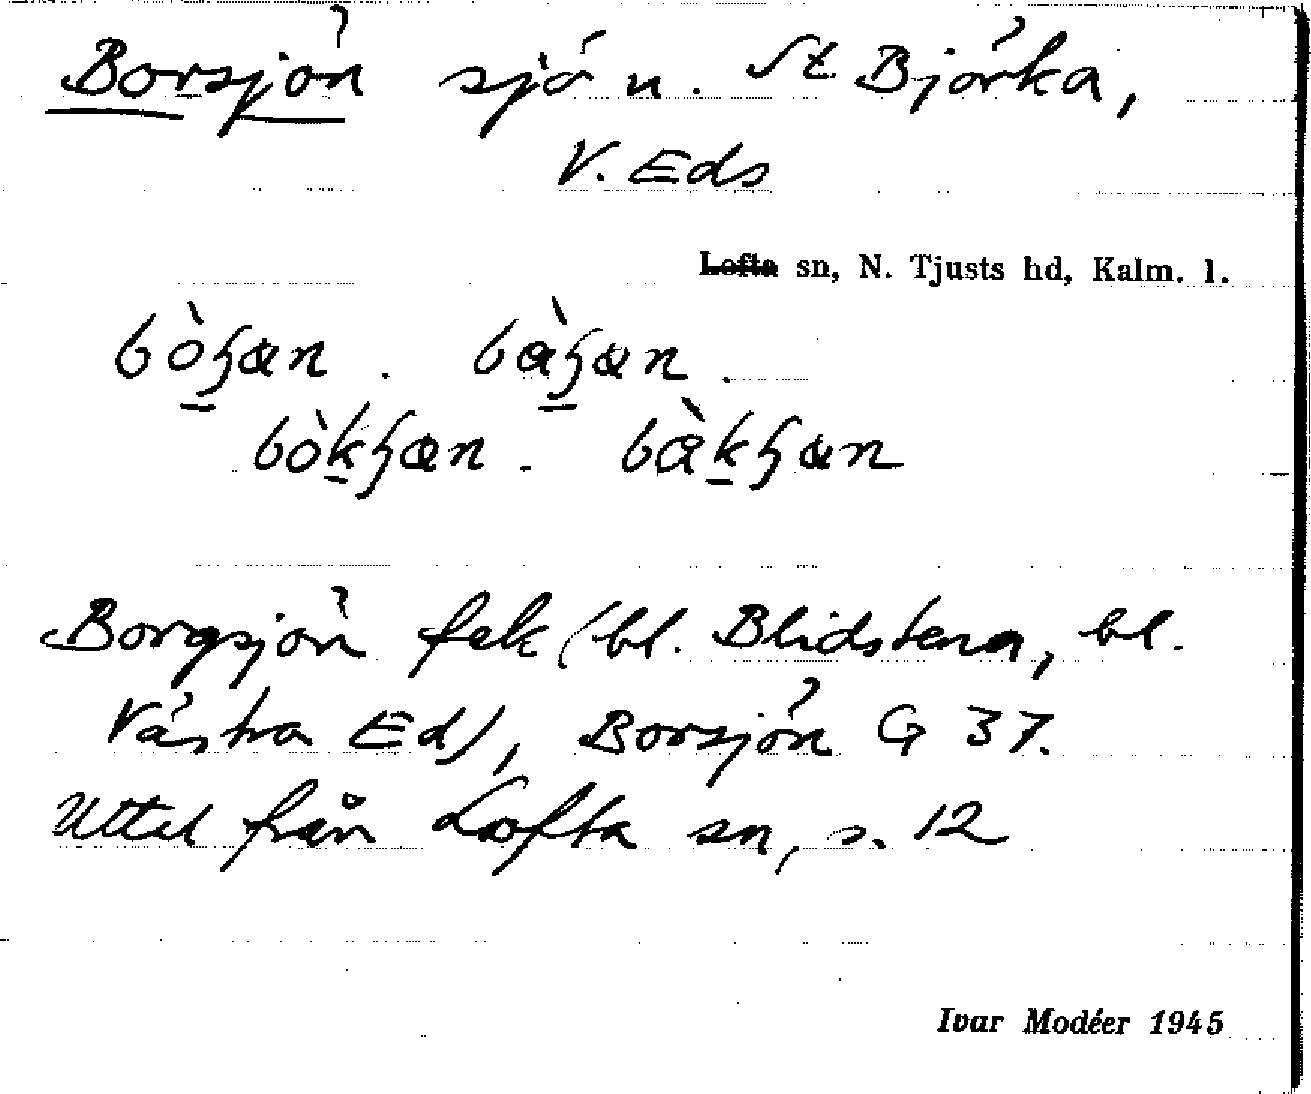 Borsjön sjö n. St Björka,
V. Eds
Lofta sn, N. Tjusts hd, Kalm. l.
Borgsjön fek (bl. Blidstena, bl.
Västra Ed), Borsjön G 37.
Uttal från Lofta sn, s. 12
Ivar Modéer 1945